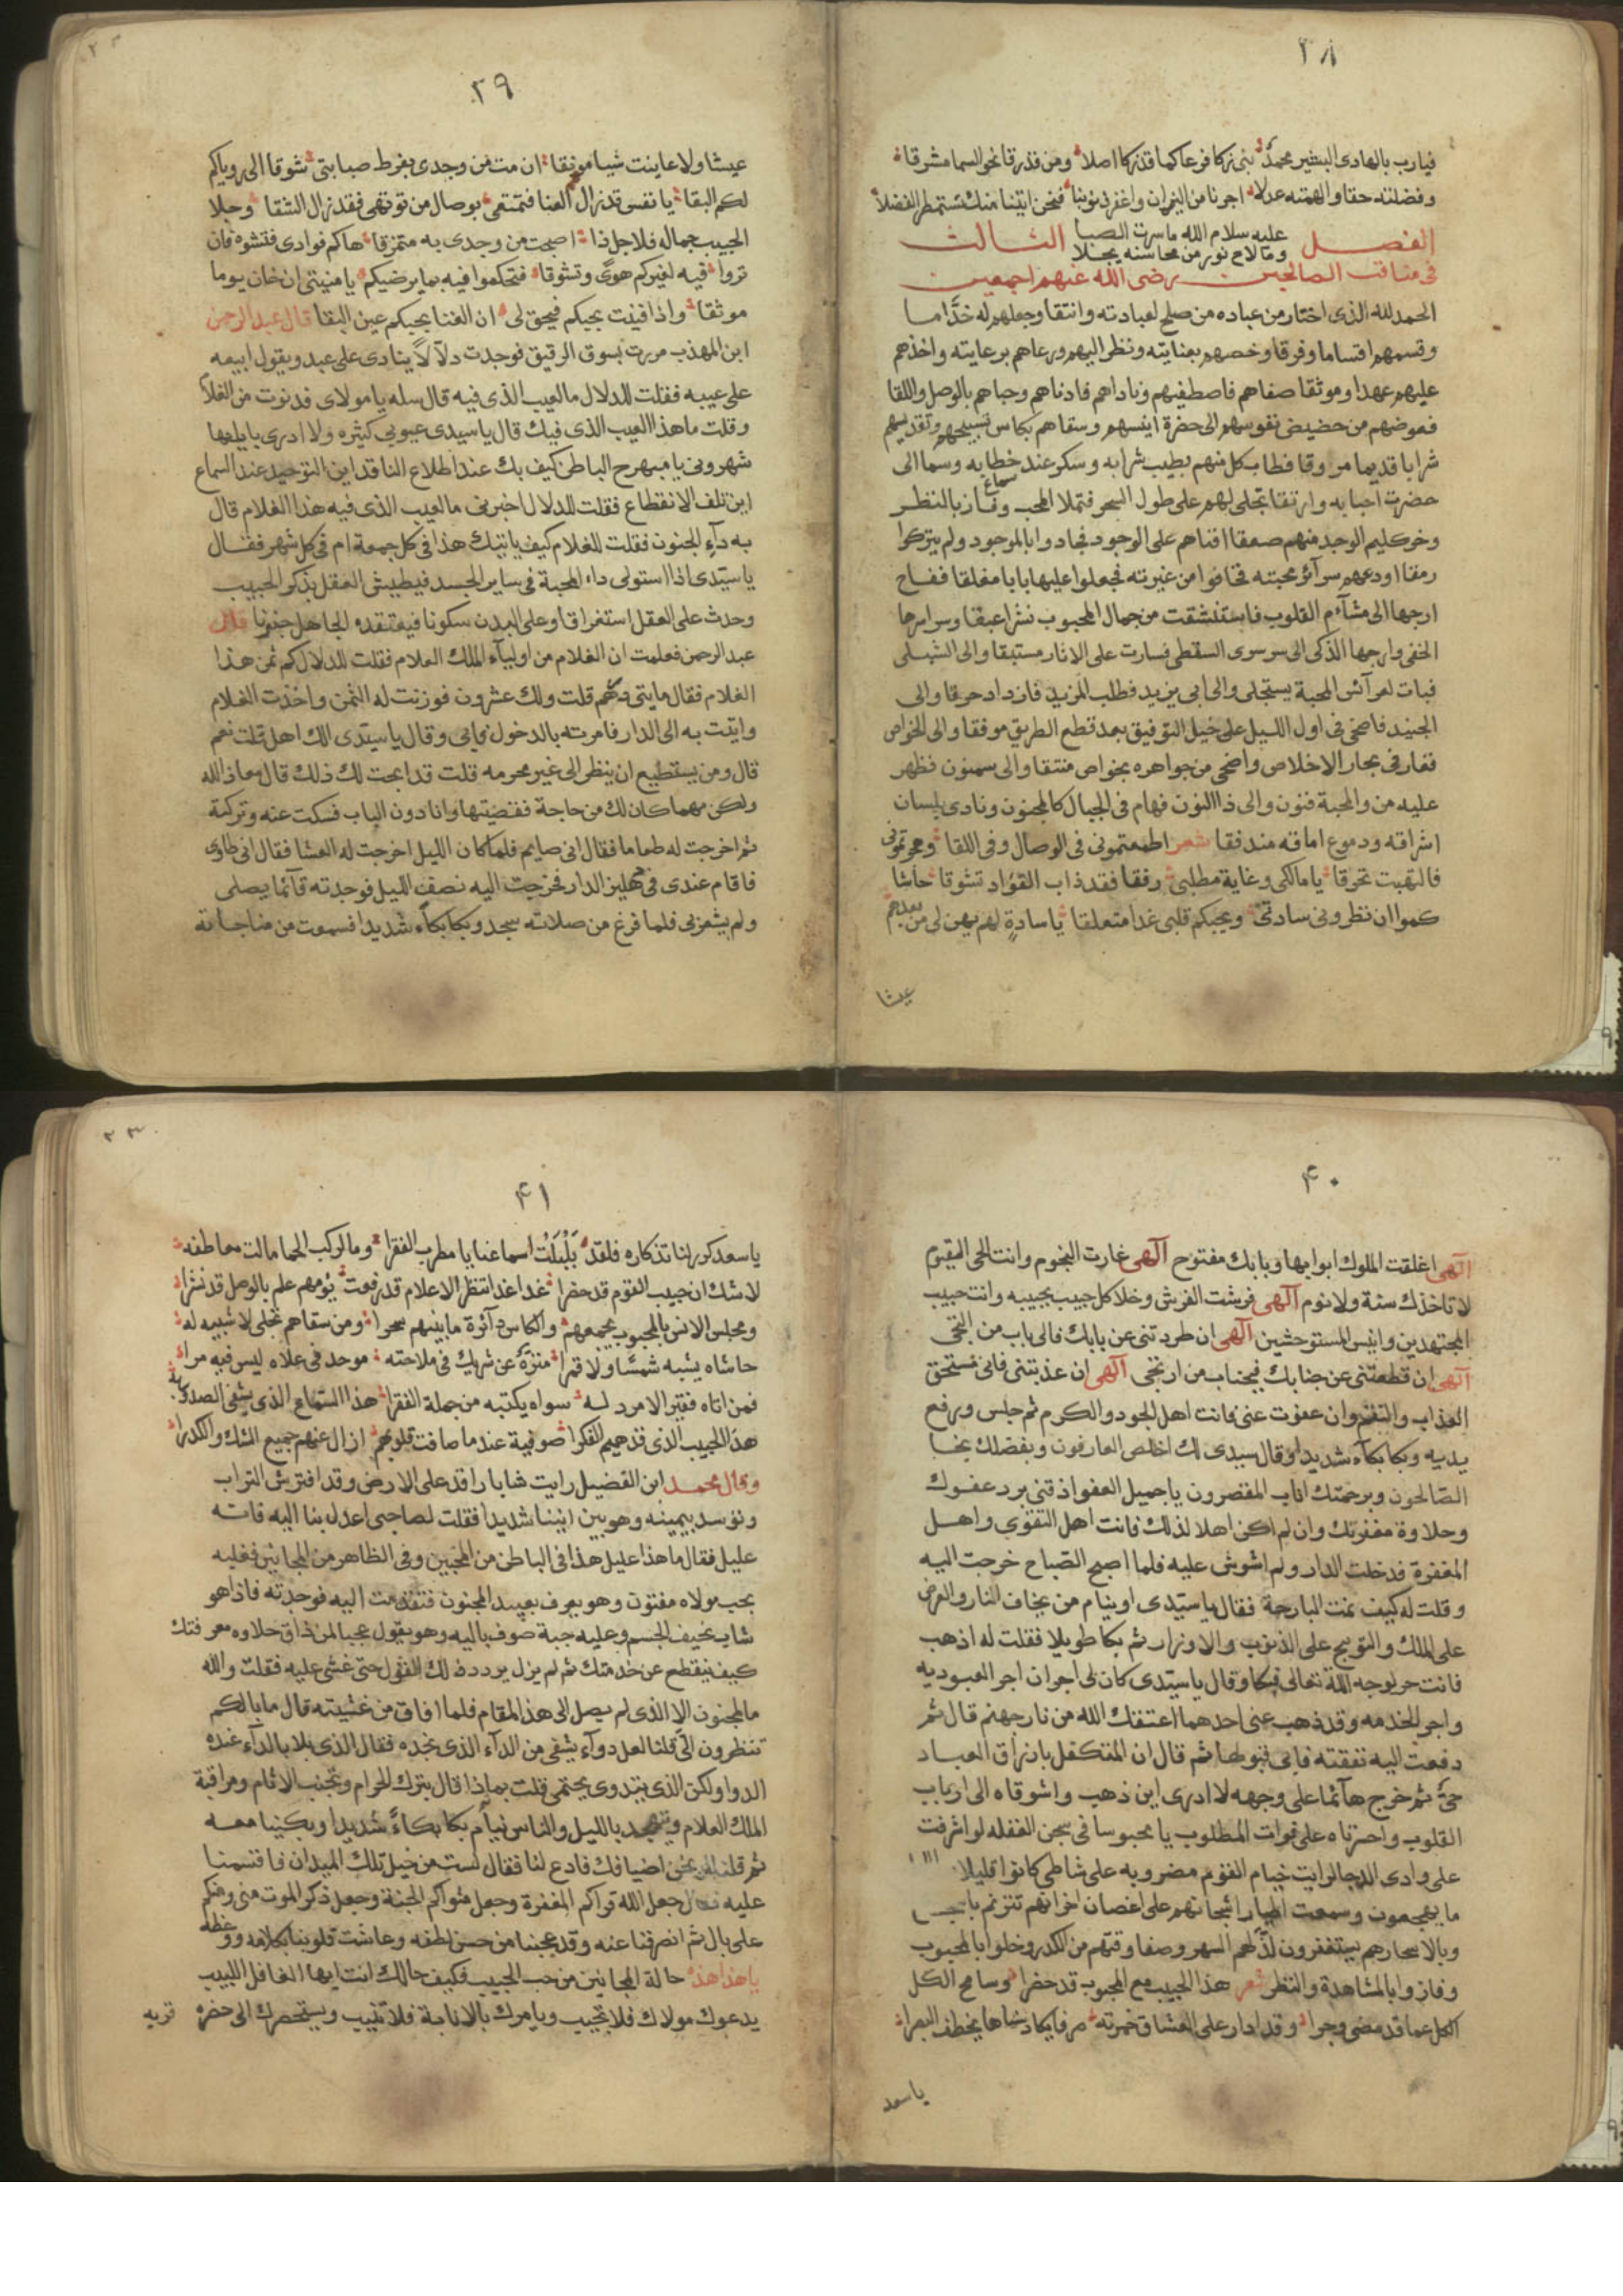 ٣٨
فيارب بالهادى البشير محمد نبى زكا فرعا كما قد زكا اصلا ومن قدرقا نحو السما مشرقا
وفضلته حقا والهمته عدلا اجرنا من النيران واغفر ذنوبنا فنحن اتينا منك نستمطر الفضلا
عليه سلام الله ما سرت الصبا
وما لاح نور من محاسنه يجلا
الفصل الثالث
فى مناقب الصالحين رضى الله عنهم اجمعين
الحمد لله الذى اختار من عباده من صلح لعبادته وانتقا وجعلهم له خدّاما
وقسمهم اقساما وفرقا وخصهم بعنايته ونظر اليهم ورعاهم برعايته واخذهم
عليهم عهدا وموثقا صفاهم فاصطفيهم وناداهم فادناهم وحباهم بالوصل واللقا
فعوضهم من حضيض نفوسهم الى حضرة انسهم وسقاهم بكاس تسبيحهم وتقديسهم
شرابا قديما مروقا فطاب كل منهم بطيب شرابه وسكر عند سماع خطابه وسما الى
حضرت احبابه وارتقا تجلى لهم على طول السحر فتملا المحب وفاز بالنظر
وخر كليم الوجد منهم صعقا افناهم على الوجود فجادوا بالموجود ولم يتركوا
رمقا اودعهم سرآئر محبته فخافوا من غيرته فجعلوا عليها بابا مغلقا ففاح
ارجها الى مشآم القلوب فاستنشقت من جمال المحبوب نشرا عبقا وسرا سرها
الخفى وارجها الذكى الى سر سرى السقطى فسارت على الاثار مستبقا والى الشبلى
فبات لعرآئس المحبة يستجلى والى ابى يزيد فطلب المزيد فازداد حرقا والى
الجنيد فاضحى فى اول الليل على خيل التوفيق بعد قطع الطريق موفقا والى الخواص
فغار فى بحار الاخلاص واضحى من جواهره بخواص منتقا والى سمنون فظهر
عليه من المحبة فنون والى ذا النون فهام فى الجبال كالمجنون ونادى بلسان
اشراقه ودموع اماقه مندفقا شعر اطمعتمونى فى الوصال وفى اللقا وهجرتمونى
فالتهبت تحرقا يا مالكى وغاية مطلبى رفقا فقد ذاب الفؤاد تشوقا حاشا
كموا ان تطردونى سادتى وبحبكم قلبى غدا متعلقا يا سادة لهم يهن لى من بعدهم
عيشا
٣٩
عيشا ولا عاينت شيا مونقا ان مت من وجدى بفرط صبابتى شوقا الى روياكم
لكم البقا يا نفس قد زال العنا فتمتعى بوصال من تهوى فقد زال الشقا وجلا
الحبيب جماله فلاجل ذا اصبحت من وجدى به متمزقا هاكم فوادى فتشوه فان
تروا فيه لغيركم هوًى وتشوقا فتحكموا فيه بما يرضيكم يا منيتى ان خان يوما
موثقا واذا فنيت بحبكم فيحق لى ان الفنا بحبكم عين البقا قال عبد الرحمن
ابن المهذب مررت بسوق الرقيق فوجدت دلّالاً ينادى على عبد ويقول ابيعه
على عيبه فقلت للدلال ما العيب الذى فيه قال سله يا مولاى فدنوت من الغلام
وقلت ما هذا العيب الذى فيك قال يا سيدى عيوبى كثيره ولا ادرى بايها
شهرونى يا مبهرج الباطن كيف بك عند اطلاع الناقد اين التوحيد عند السماع
اين تلف الانقطاع فقلت للدلال اخبرنى ما العيب الذى فيه هذا الغلام قال
به دآء الجنون فقلت للغلام كيف ياتيك هذا فى كل جمعة ام فى كل شهر فقال
يا سيّدى اذا استولى داء المحبة فى ساير الجسد فيطيش العقل بذكر الحبيب
وحدث على العقل استغراقا وعلى البدن سكونا فيعتقده الجاهل جنونا قال
عبد الرحمن فعلمت ان الغلام من اوليآء الملك العلام فقلت للدلال كم ثمن هذا
الغلام فقال مايتى درهم قلت ولك عشرون فوزنت له الثمن واخذت الغلام
وايتت به الى الدار فامرته بالدخول فابى وقال يا سيّدى الك اهل قلت نعم
قال ومن يستطيع ان ينظر الى غير محرمه قلت قد ابحت لك ذلك قال معاذ الله
ولكن مهما كان لك من حاجة فقضيتها وانا دون الباب فسكت عنه وتركته
ثم اخرجت له طعاما فقال انى صايم فلما كان الليل اخرجت له العشا فقال انى طاوى
فاقام عندى فى دهليز الدار فخرجت اليه نصف الليل فوجدته قآئما يصلى
ولم يشعر بى فلما فرغ من صلاته سجد وبكا بكآء شديدا فسمعت من مناجاته
٤٠
آلهى اغلقت الملوك ابوابها وبابك مفتوح آلهى غارت النجوم وانت الحى القيوم
لا تاخذك سنة ولا نوم آلهى فرشت الفرش وخلا كل حبيب بحبيبه وانت حبيب
المجتهدين وانيس المستوحشين آلهى ان طردتنى عن بابك فالى باب من التجى
آلهى ان قطعتنى عن جنابك فبجناب من ارتجى آلهى ان عذبتنى فانى مستحق
العذاب والنقم وان عفوت عنى فانت اهل الجود والكرم ثم جلس ورفع
يديه وبكا بكآء شديدا وقال سيدى لك اخلص العارفون وبفضلك نجا
الصّالحون وبرحمتك اناب المقصرون يا جميل العفو اذقنى برد عفوك
وحلاوة مغفرتك وان لم اكن اهلا لذلك فانت اهل التقوى واهل
المغفرة فدخلت الدار ولم اشوش عليه فلما اصبح الصّباح خرجت اليه
وقلت له كيف نمت البارحة فقال يا سيّدى اوينام من يخاف النار والعرض
على الملك والتوبيخ على الذنوب والاوزار ثم بكا طويلا فقلت له اذهب
فانت حر لوجه اللّه تعالى فبكا وقال يا سيّدى كان لى اجران اجر العبوديه
واجر الخدمه وقد ذهب عنى احدهما اعتقك الله من نار جهنم قال ثم
دفعت اليه نفقته فابى قبولها ثم قال ان المتكفل بارزاق العباد
حىّ ثم خرج هآئما على وجهه لا ادرى اين ذهب واشوقاه الى ارباب
القلوب واحسرتاه على فوات المطلوب يا محبوسا فى سجن الغفله لو اشرفت
على وادى الدجا لرايت خيام القوم مضروبه على شاطى كانوا قليلا
ما يهجعون وسمعت اطيار اشجانهم على اغصان احزانهم تترنم
وبالاسحار هم يستغفرون لذّ لهم السهر وصفا وقتهم من الكدر وخلوا بالمحبوب
وفازوا بالمشاهدة والنظر شعر هذا الحبيب مع المحبوب قد حضرا وسامح الكل
الكل عما قد مضى وجرا وقد ادار على العشاق خمرته صرفا يكاد سناها يخطف البصرا
يا سعد
٤١
يا سعد كرر لنا تذكاره فلقد بَلْبَلْتَ اسماعنا يا مطرب الفقرا وما لركب الحما مالت معاطفه
لا شك ان حبيب القوم قد حضرا غدا غدا تنظر الاعلام قد رفعت يؤمهم علم بالوصل قد نشرا
ومجلس الانس بالمحبوب يجمعهم والكاس دآئرة ما بينهم سحرا ومن سقاهم تجلى لا شبيه له
حاشاه يشبه شمسًا ولا قمرا منزّه عن شريك فى ملاحته موحد فى علاه ليس فيه مرا
فمن اتاه فقير الامرد له سواه يكتبه من جملة الفقرا هذا السّماع الذى يشفى الصدور به
هذا الحبيب الذى قد هيم الفكرا صوفية عندما صافت قلوبهم ازال عنهم جميع الشك والكدرا
وقال محمد ابن الفضيل رايت شابا راقد على الارض وقد افترش التراب
وتوسد بيمينه وهو يين انينا شديدا فقلت لصاحبى اعدل بنا اليه فانه
عليل فقال ما هذا عليل هذا فى الباطن من المحبين وفى الظاهر من المجانين فقلبه
بحب مولاه مفتون وهو يعرف بعبيد المجنون فتقدمت اليه فوجدته فاذا هو
شاب نحيف الجسم وعليه جبة صوف باليه وهو يقول عجبا لمن ذاق حلاوه معرفتك
كيف ينقطع عن خدمتك ثم لم يزل يردد ذلك القول حتى غشى عليه فقلت والله
ما المجنون الا الذى لم يصل الى هذا المقام فلما افاق من غشيته قال ما بالكم
تنظرون الىّ قلنا لعل دوآء يشفى من الدآء الذى تجده فقال الذى بلا بالدآء عنده
الدوا ولكن الذى يتدوى يحتمى قلت بماذا قال بترك الحرام وتجنب الاثام ومراقبة
الملك العلام ويتهجد بالليل والناس نيام بكا بكاءً شديدا وبكينا معه
ثم قلنا له نحن اضيافك فادع لنا فقال لست من خيل تلك الميدان فاقسمنا
عليه فقال جعل الله قراكم المغفرة وجعل مثواكم الجنة وجعل ذكر الموت منى ومنكم
على بال ثم انصرفنا عنه وقد عجبنا من حسن لطفه وعاشت قلوبنا بكلامه ووعظه
يا هذا هذه حالة المجانين من حب الحبيب فكيف حالك انت ايها الغافل اللبيب
يدعوك مولاك فلا تجيب ويامرك بالانابة فلا تنيب ويستحضرك الى حضره
قربه